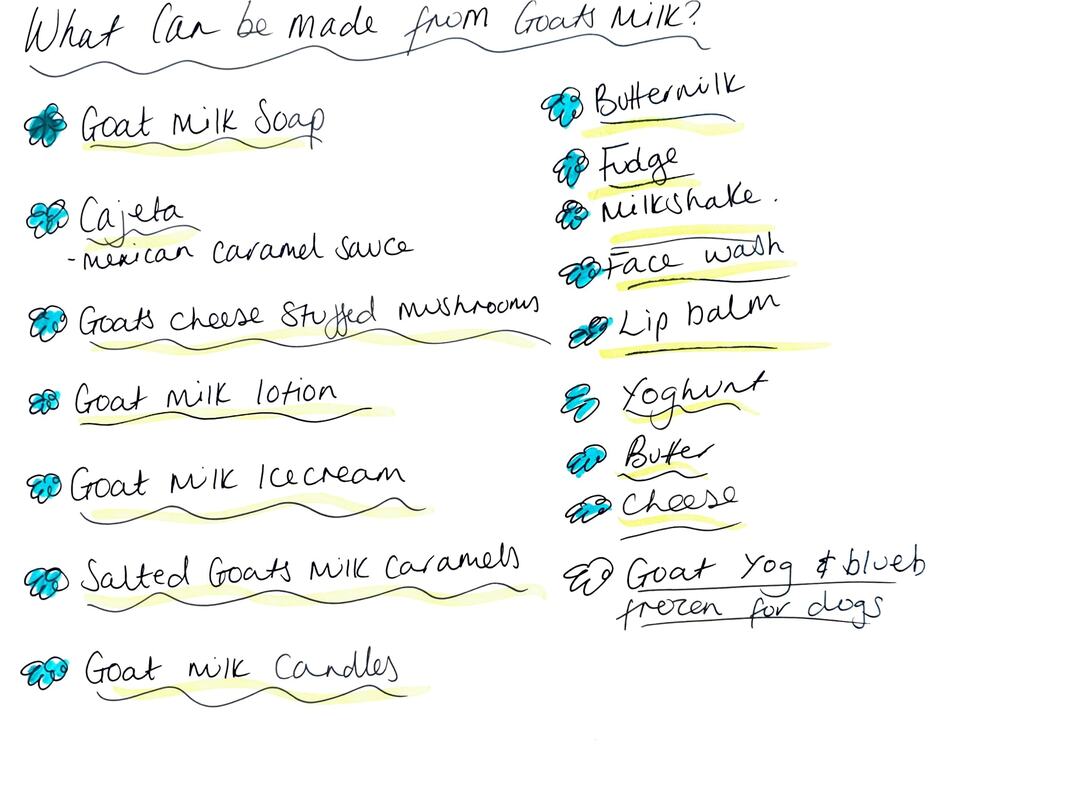 What Can be made from Goats Milk?
Goat Milk Soap
Cajeta
-mexican caramel sauce
Goats cheese Stuffed mushrooms
Goat milk lotion
Goat milk Icecream
Salted Goats Milk Caramels
Goat milk Candles
Buttermilk
Fudge
Milkshake.
Face wash
Lip balm
Yoghurt
Butter
Cheese
Goat Yog & blueb
frozen for dogs